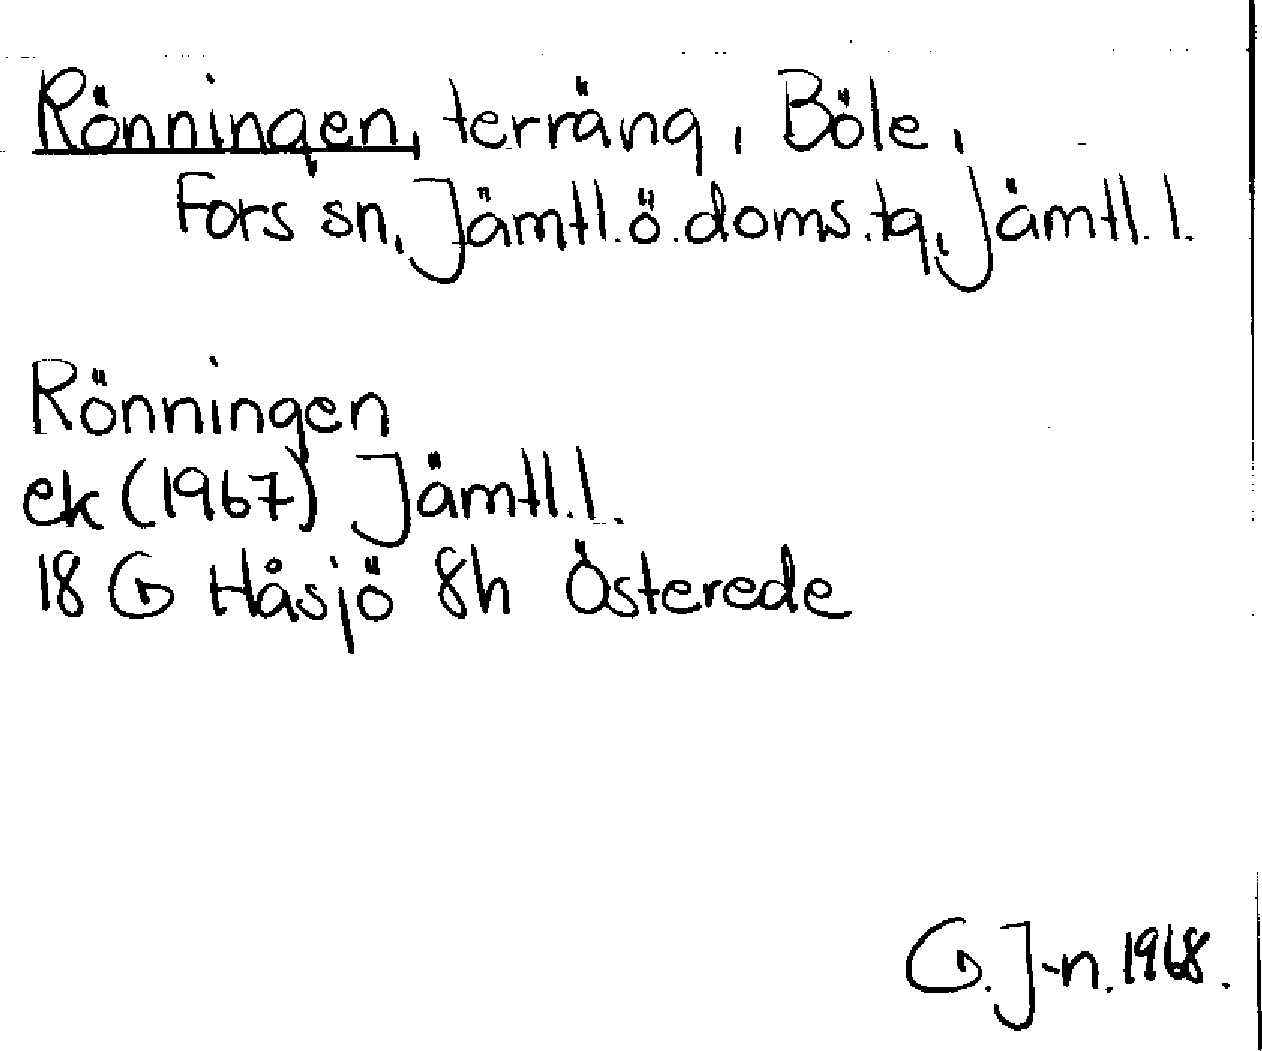 Rönningen, terräng, Böle,
Fors sn, Jämtl.ö.doms.tg, Jämtl.l.
Rönningen
ek (1967) Jämtl.l.
18 G Håsjö 8h Österede
G.J-n.1968.